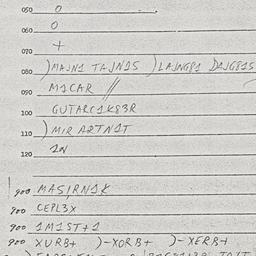 050 O
060 O
070 +
080 )MAJN1 TAJN15 )LAJNG81 DAJG815
090 M1CAR //
100 GUTARC1K83R
110 )MIR ARTN1T
120 1N
900 MASIRN1K
900 CEPL3X
900 1M1ST+1
900 XURB+ )-XORB+ )-XERB+